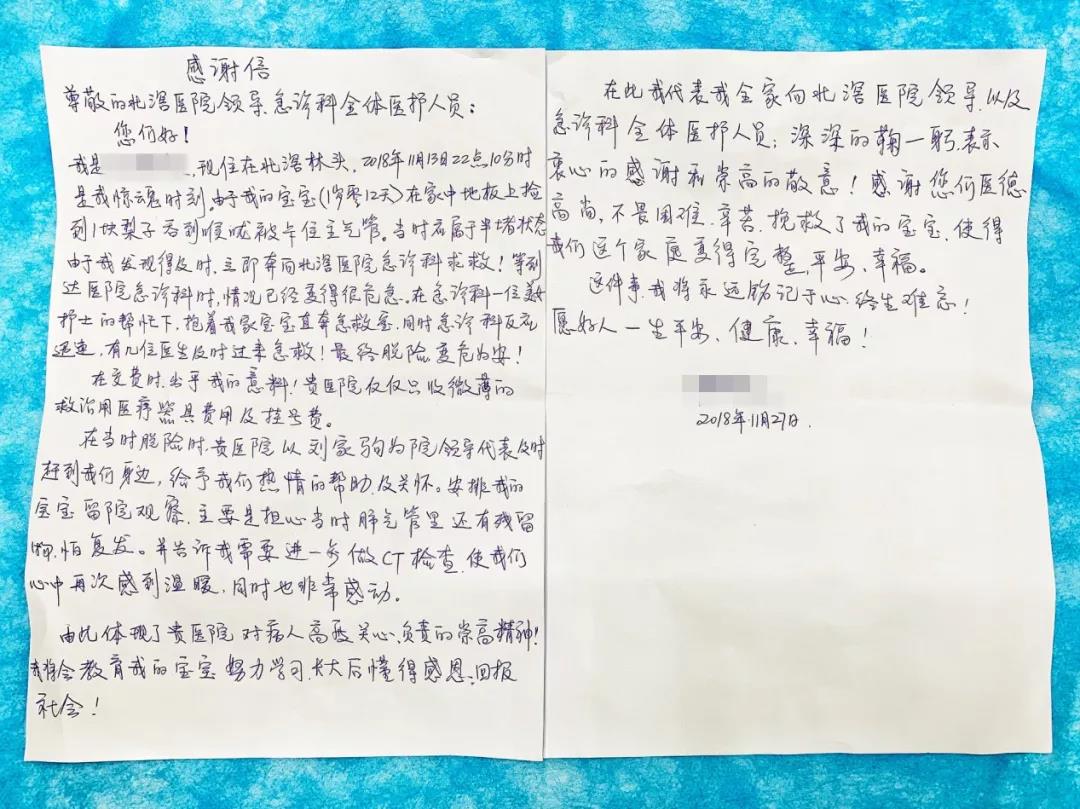 感谢信
尊敬的北滘医院领导、急诊科全体医护人员：
您们好！
我是，现住在北滘林头，2018年11月13日22点10分时
是我惊魂时刻。由于我的宝宝（1岁零12天）在家中地板上捡
到1块梨子吞到喉咙被卡住主气管。当时属于半堵状态
由于我发现得及时，立即奔向北滘医院急诊科求救！等到
达医院急诊科时，情况已经变得很危急。在急诊科一位
护士的帮忙下，抱着我家宝宝直奔急救室，同时急诊科反应
迅速，有几位医生及时过来急救！最终脱险变危为安！
在交费时，出乎我的意料！贵医院仅仅只收微薄的
救治用医疗器具费用及挂号费。
在当时脱险时，贵医院以刘家驹为院领导代表及时
赶到我们身边，给予我们热情的帮助及关怀。安排我的
宝宝留院观察，主要是担心当时肺气管里还有残留
物，怕复发。并告诉我需要进一步做CT检查，使我们
心中再次感到温暖，同时也非常感动。
由此体现了贵医院对病人高度关心、负责的崇高精神！
我将会教育我的宝宝努力学习，长大后懂得感恩，回报
社会！
在此我代表我全家向北滘医院领导、以及
急诊科全体医护人员；深深的鞠一躬，表示
衷心的感谢和崇高的敬意！感谢您们医德
高尚，不畏困难、辛苦，挽救了我的宝宝，使得
我们这个家庭变得完整，平安、幸福。
这件事，我将永远铭记于心，终生难忘！
愿好人一生平安、健康、幸福！
2018年11月27日.